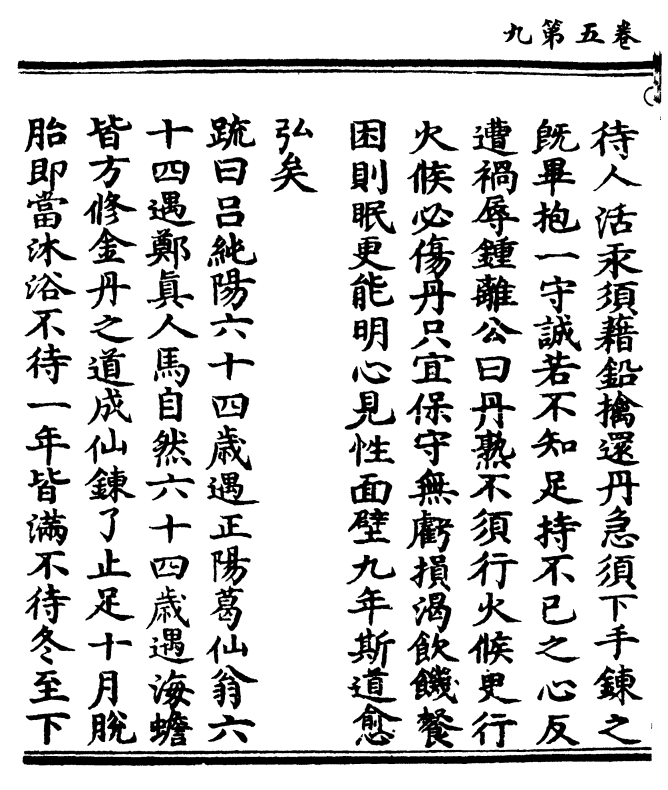 九第五卷
待人活汞須藉鉛擒還丹急須下手鍊之
既畢抱一守誠若不知足持不已之心反
遭禍辱鍾離公曰丹熟不須行火候更行
火候必傷丹只宜保守無虧損渴飲饑餐
困則眠更能明心見性面壁九年斯道愈
弘矣
疏曰呂純陽六十四歲遇正陽葛仙翁六
十四遇鄭真人馬自然六十四歲遇海蟾
皆方修金丹之道成仙鍊了止足十月脫
胎即當沐浴不待一年皆滿不待冬至下